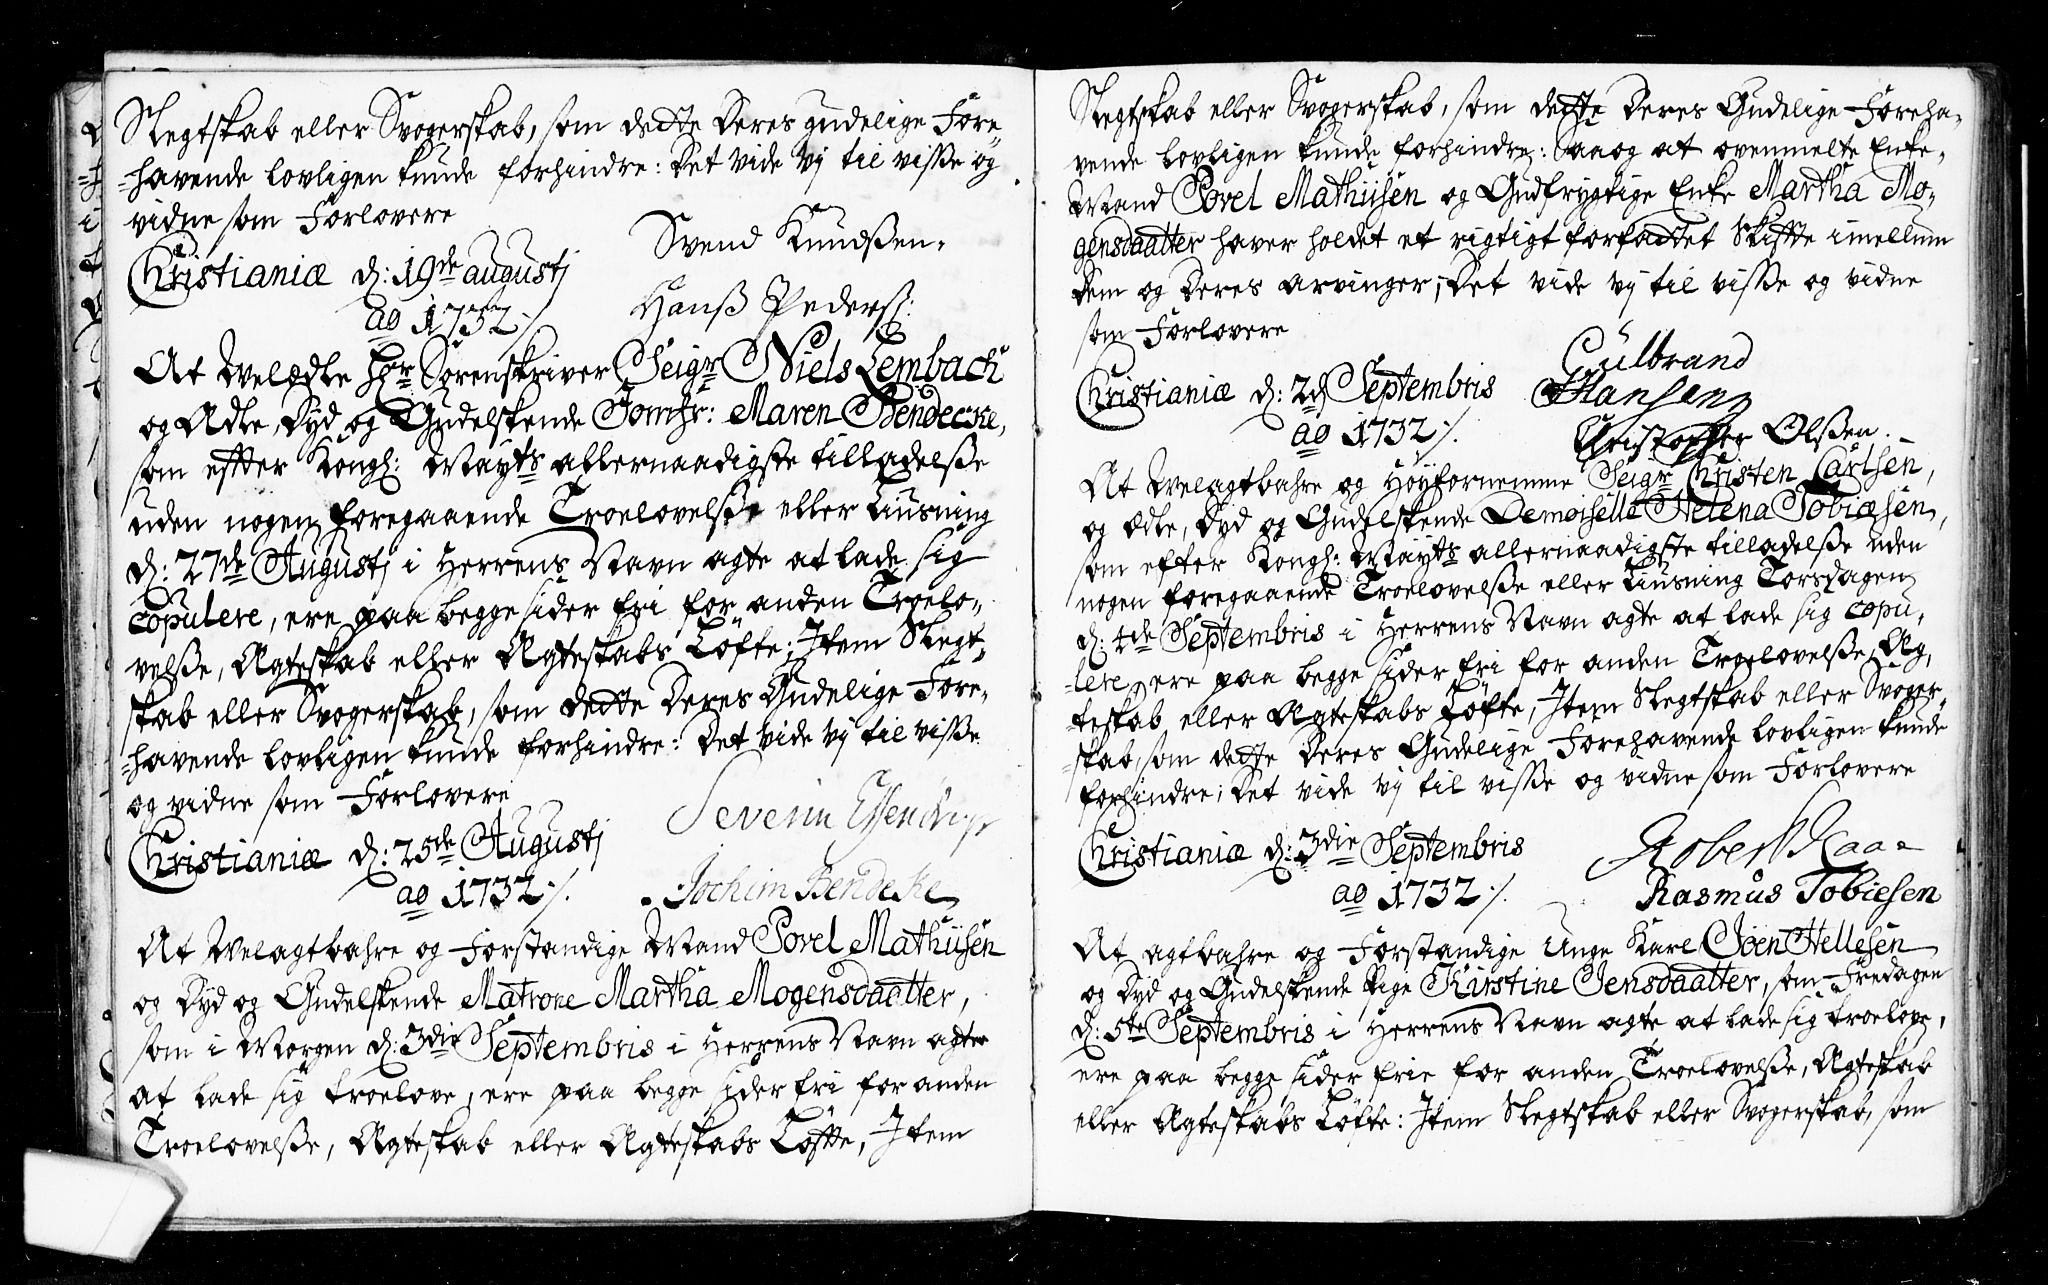 Slegtskab eller Svogerskab, som dette Deres gudelige Fore„
„havende lovligen kunde forhindre: Det vide vj til visße og
vidne som Forlovere
Svend Knudßen.
Christianiæ d: 19de augustj
Hanß Pederß:
ao 1732 ./.
At Welædle Hr Sorenskriver Seigr Niels Lembach
og Ædle, Dyd og Gudelskende Jomfr: Maren Bendecke,
som effter Kongl: Mayts allernaadigste tilladelße
uden nogen foregaaende Troelovelße eller Liusning
d: 27de Augustj i Herrens Navn agte at lade sig
copulere, ere paa begge sider fri for anden Troelo„
velße, Ægteskab eller Ægteskabs Løfte; Item Slegt„
skab eller Svogerskab, som dette Deres Gudelige Fore„
„havende lovligen kunde forhindre: Det vide vj til visße
og vidne som Forlovere
Severin
Christianiæ d: 25de Augustj
ao 1732 ./.
Jochim Bendeke
At Welagtbahre og Forstandige Mand Povel Mathiisen
og Dyd og Gudelskende Matrone Martha Mogensdaatter,
som i Morgen d: 3die Septembris i Herrens Navn agter
at lade sig troelove, ere paa begge sider fri for anden
Troelovelße, Ægteskab eller Ægteskabs Løffte, Item
Slegtskab eller Svogerskab, som dette Deres Gudelige Foreha„
vende lovligen kunde forhindre: Saa og at ovenmelte Enke„
Mand Povel Mathiisen og Gudfrygtige Enke Martha Mo„
gensdaatter haver holdet et rigtigt forfattet Skiffte imellum
Dem og Deres Arvinger; Det vide vj til visße og vidne
som Forlovere
Gulbrand
Christianiæ d: 2d Septembris
Hansen
ao 1732 ./.
Christopher Olßen.
At Welagtbahre og Høyfornemme Seigr Christen Carlsen,
og Ædle, Dyd og Gudelskende Demoiselle Helena Tobiæsen,
som efter Kongl: Mayts allernaadigste tilladelße uden
nogen foregaaende Troelovelße eller Liusning Torsdagen
d: 4de Septembris i Herrens Navn agte at lade sig copu„
„lere, ere paa begge sider fri for anden Troelovelße, Æg„
teskab eller Ægteskabs Løfte, Item Slegtskab eller Svoger„
„skab, som dette Deres Gudelige Forehavende lovligen kunde
forhindre; Det vide vj til visße og vidne som Forlovere
Christianiæ d: 3die Septembris
Robert Kaa
ao 1732 ./.
Rasmus Tobiesen
At agtbahre og Forstandige Unge Karl Joen Hellesen
og Dyd og Gudelskende Pige Kirstine Jensdaatter, som Fredagen
d: 5te Septembris i Herrens Navn agte at lade sig troelove,
ere paa begge sider frie for anden Troelovelße, Ægteskab
eller Ægteskabs Løfte: Item Slegtskab eller Svogerskab, som